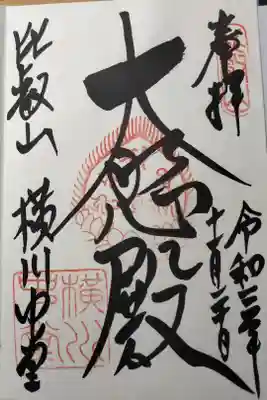 奉拝
令和三年
大悲殿
比叡山 横川中堂
横川中堂